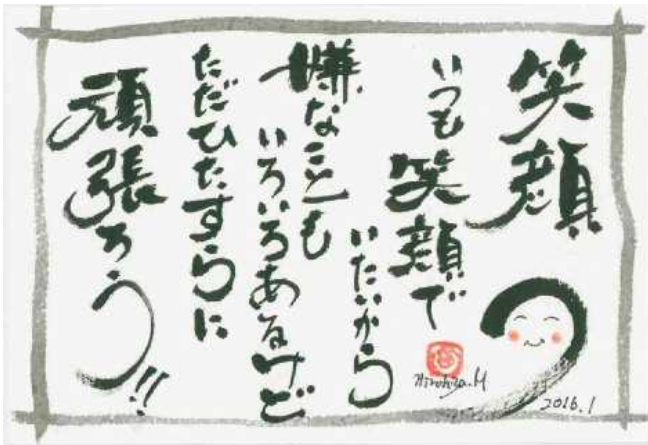 笑顔
いつも笑顔で
いたいから
嫌なことも
いろいろあるけど
ただひたすらに
頑張ろう!!
Hirohisa.H
2016.1